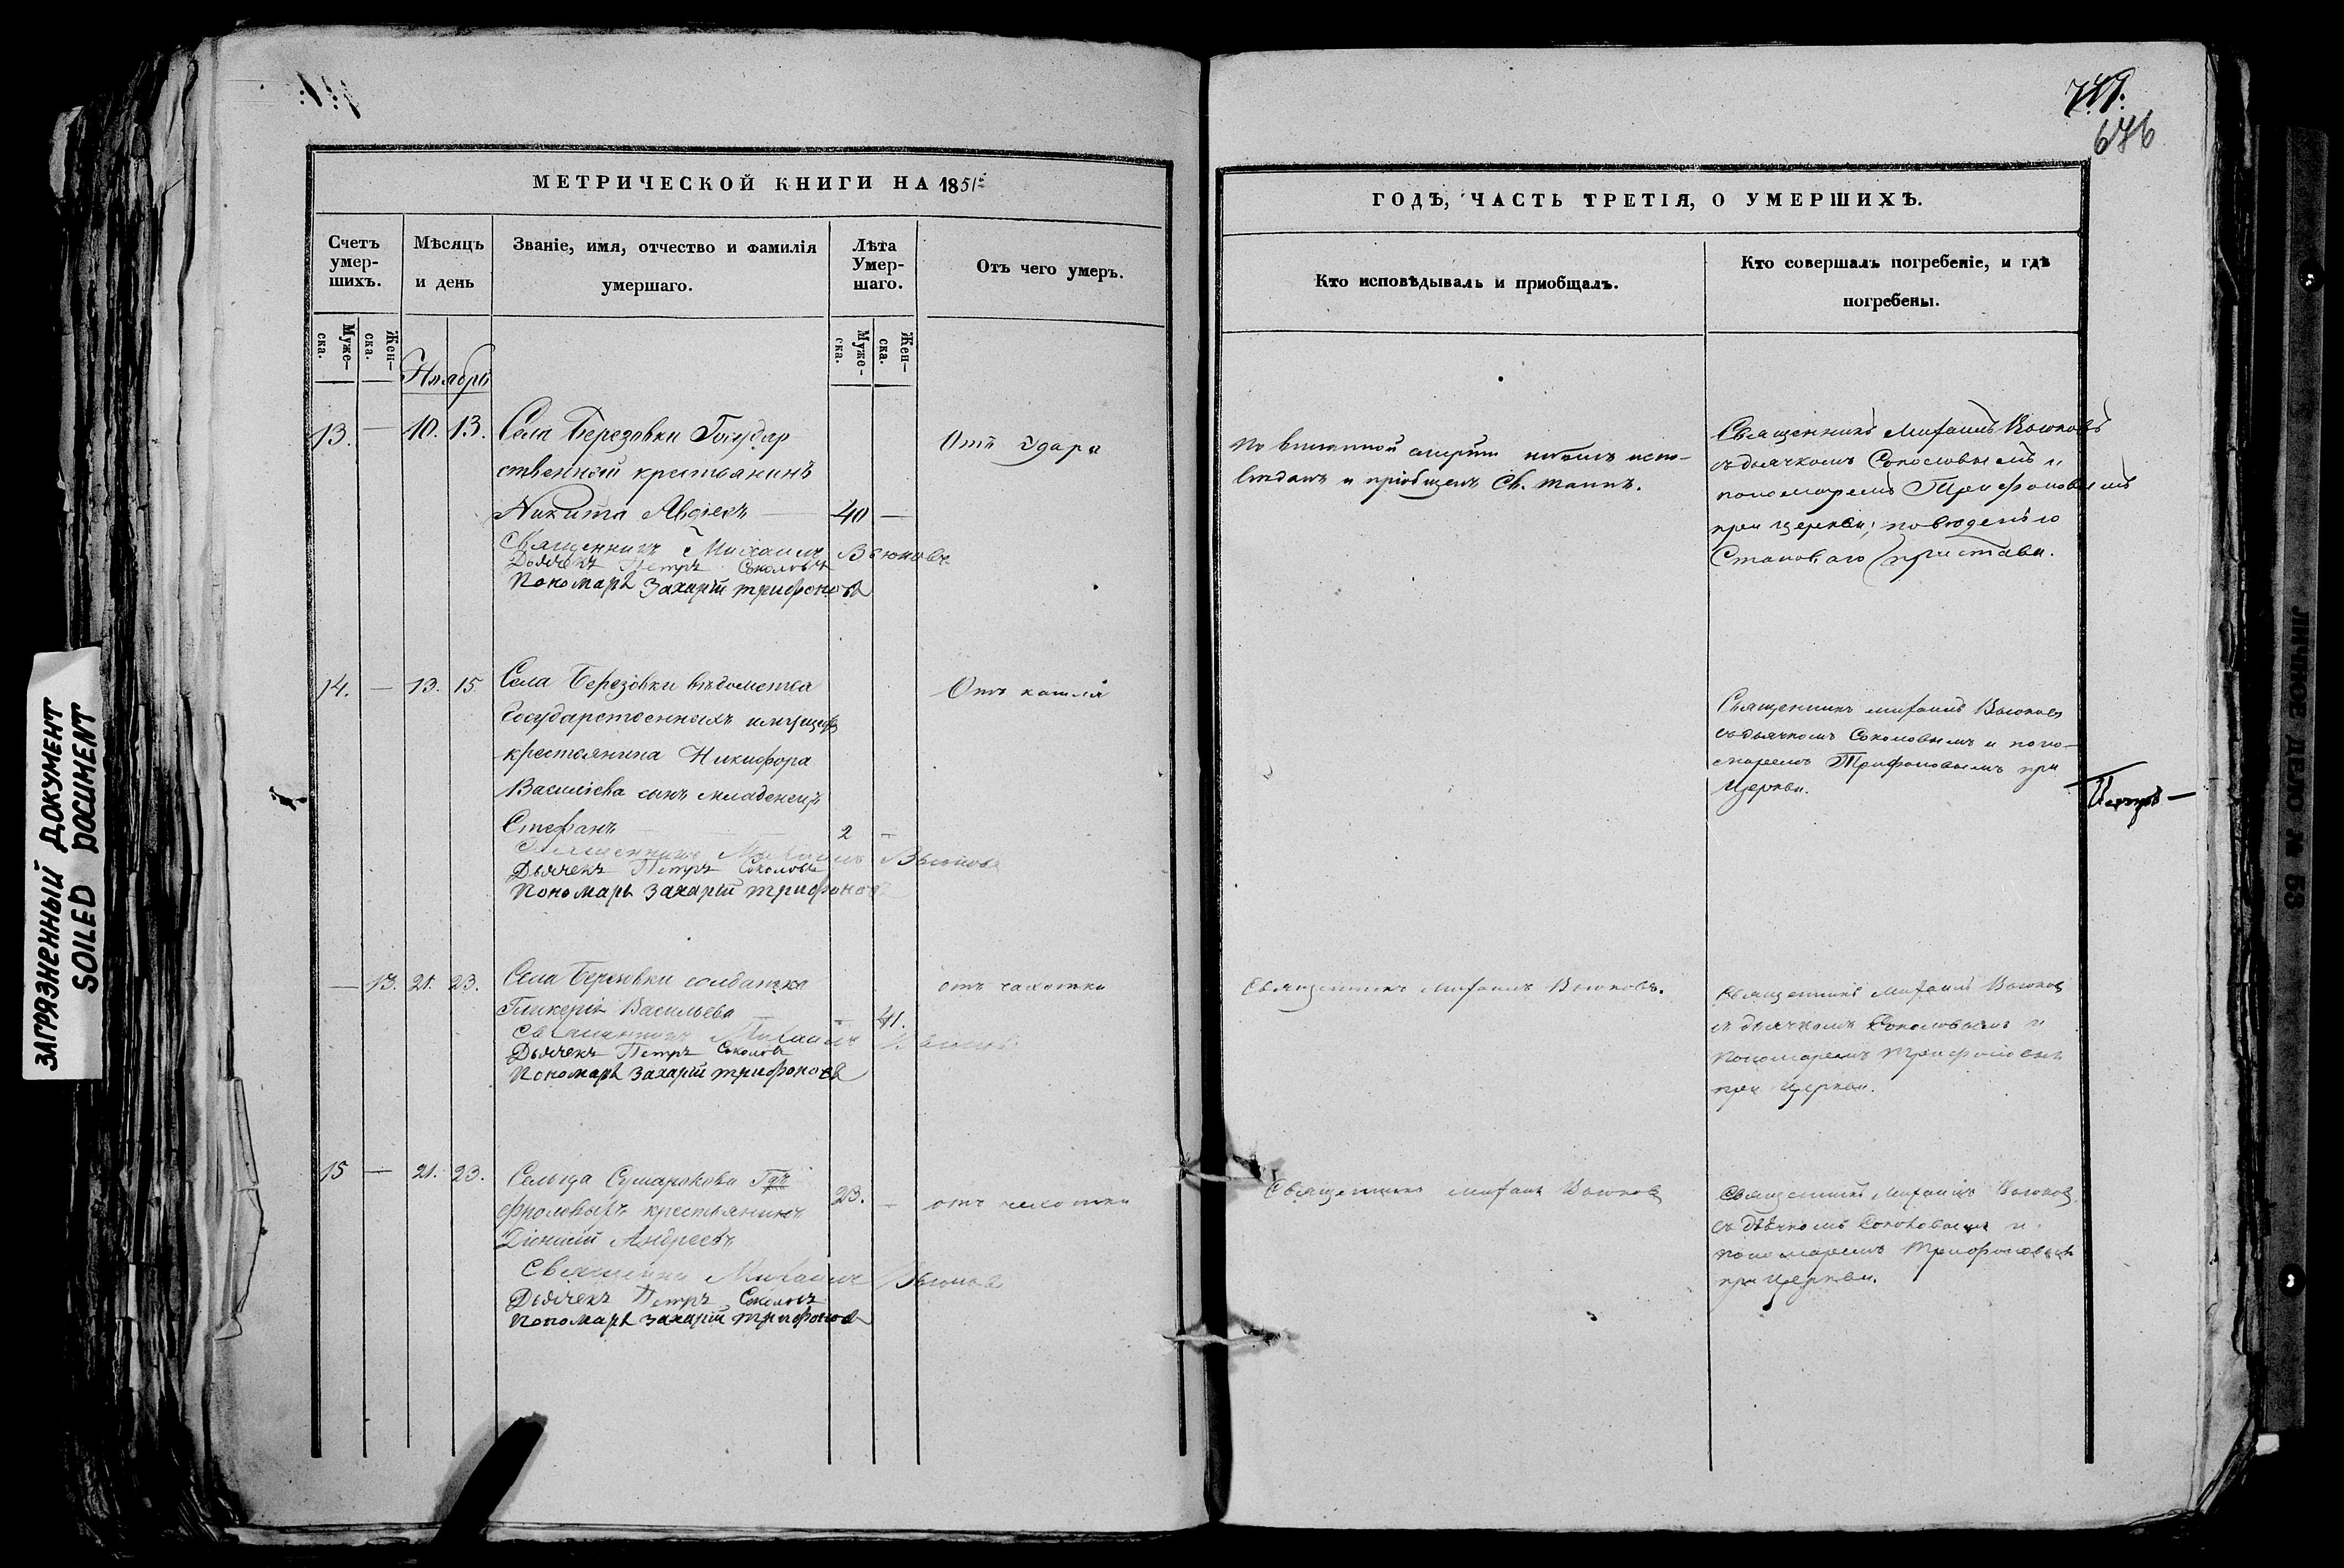 676
МЕТРИЧЕСКОЙ КНИГИ НА 1851й
Счетъ умер-шихъ.
Мѣсяцъ и день
Званіе, имя, отчество и фамилія
умершаго.
Лѣта Умер-шаго.
Отъ чего умеръ.
Муже-ска.
Жен-ска.
Муже-ска.
Жен-ска.
Ноябрь
13. — 10. 13.
Села Березовки Государ
ственный крестьянинъ
Никита Авдіевъ
40 —
Отъ удара
Священникъ Михаилъ Вьюновъ
Дьячекъ Петръ Соколовъ
Пономарь Захарій Трифоновъ
14. — 13. 15.
Села Березовки вѣдомства
Государственныхъ имуществ
крестьянина Никифора
Василіева сынъ младенецъ
Стефанъ
2 —
Отъ кашля
Священникъ Михаилъ Вьюновъ
Дьячекъ Петръ Соколовъ
Пономарь Захарій Трифоновъ
— 13. 21. 23.
Села Березовки солдатка
Гликерія Васильева
— 41.
отъ чахотки
Священникъ Михаилъ Вьюновъ
Дьячекъ Петръ Соколовъ
Пономарь Захарій Трифоновъ
15 — 21. 23.
Сельца Сумарокова Гдъ
Фроловыхъ крестьянинъ
Діонисій Андреевъ
23. —
отъ чахотки
Священникъ Михаилъ Вьюновъ
Дьячекъ Петръ Соколовъ
Пономарь Захарій Трифоновъ
ГОДЪ, ЧАСТЬ ТРЕТІЯ, О УМЕРШИХЪ.
Кто исповѣдывалъ и приобщалъ.
Кто совершалъ погребеніе, и гдѣ
погребены.
По внезапной смерти испо-
вѣданъ и пріобщенъ Св. таинъ.
Священникъ Михаилъ Вьюновъ
съ дьячкомъ Соколовымъ и
пономаремъ Трифоновымъ
при церкви;
Становаго пристава.
Священникъ Михаилъ Вьюновъ
съ дьячкомъ Соколовымъ и поно-
маремъ Трифоновымъ при
Церкви.
Священникъ Михаилъ Вьюновъ.
Священникъ Михаилъ Вьюновъ
съ дьячкомъ Соколовымъ и
Пономаремъ Трифоновымъ
при Церкви.
Священникъ Михаилъ Вьюновъ
Священникъ Михаилъ Вьюновъ
съ дьячкомъ Соколовымъ и
пономаремъ Трифоновымъ
при Церкви.
ЗАГРЯЗНЕННЫЙ ДОКУМЕНТ
SOILED DOCUMENT
ЛИЧНОЕ ДЕЛО №